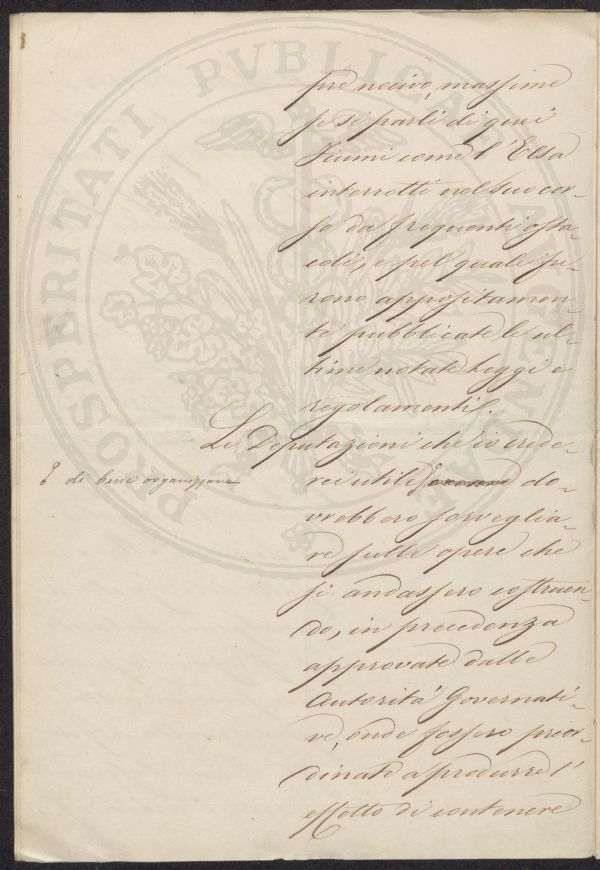 PROSPERITATI PVBLICAE AVGENDAE
pre nocivo, massime
se si parli di quei
Fiumi come l'Elsa
interrotti nel suo cor-
so da frequenti osta-
coli, e pel quale fu-
rono appositamen-
te pubblicate le ul-
time notate Leggi e
regolamenti.
Le Deputazioni che io crede-
rei utile do-
di bene organizzare
vrebbero sorveglia-
re sulle opere che
si andassero costruen-
do, in precedenza
approvate dalle
Autorità Governati-
ve, onde fossero preor-
dinate a produrre l'
effetto di contenere